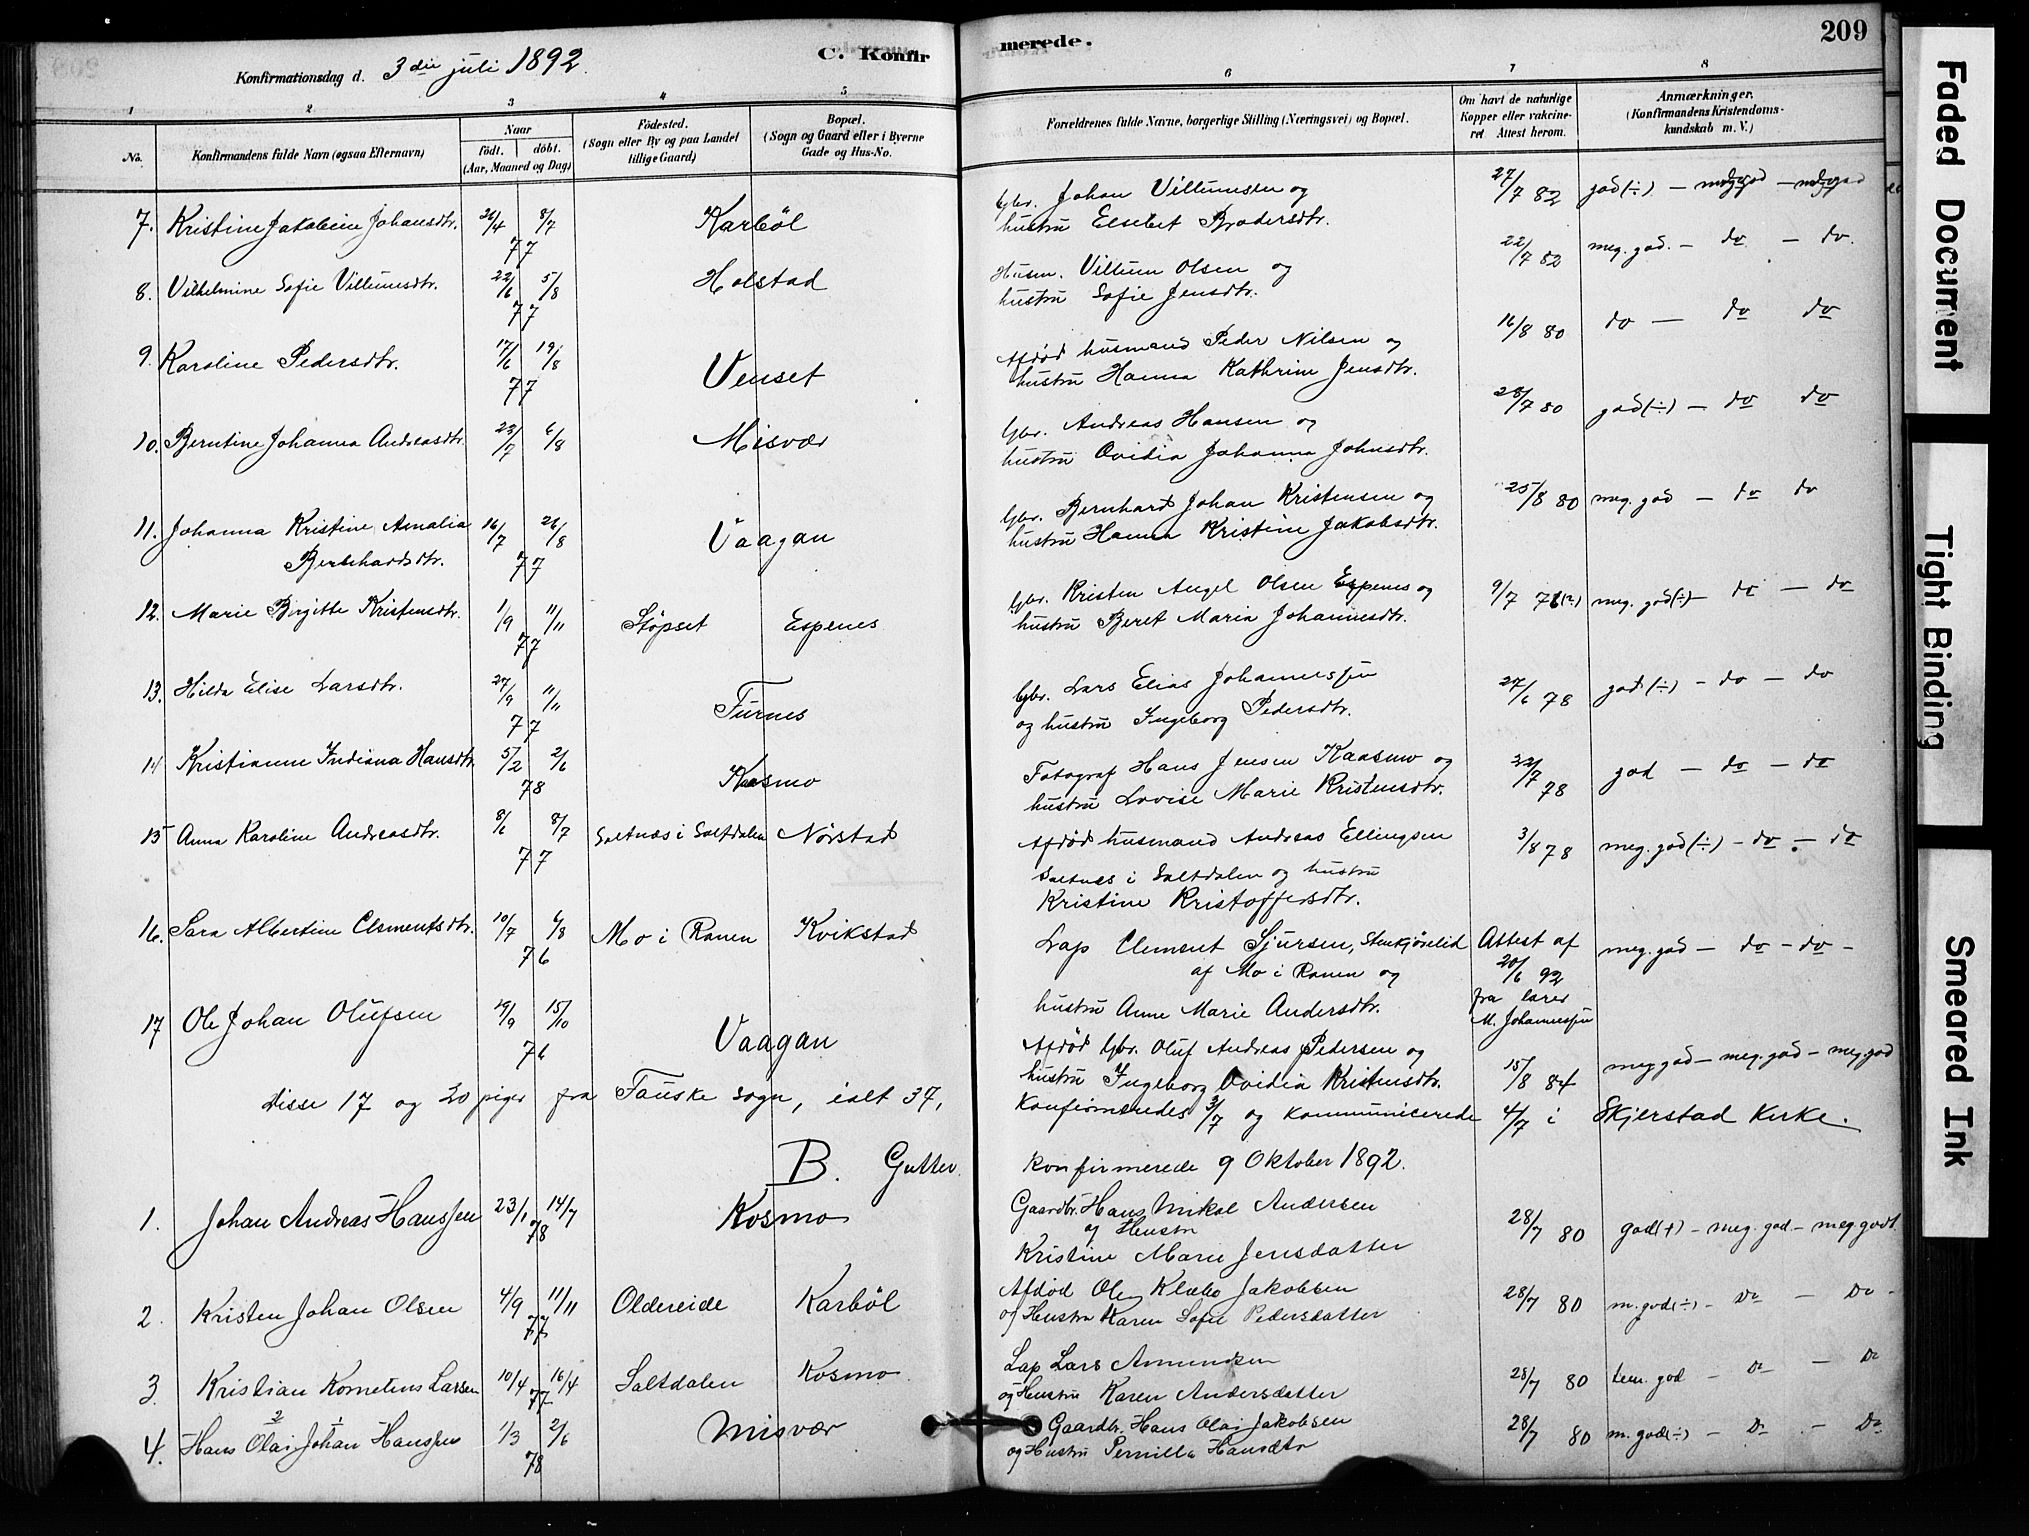 209
C. Konfir
merede.
Konfirmationsdag d. 3die juli 1892.
1 2 3 4 5 6 7 8
No. Konfirmandens fulde Navn (ogsaa Efternavn) Naar født. døbt. (Aar, Maaned og Dag) Fødested. (Sogn eller By og paa Landet tillige Gaard) Bopæl. (Sogn og Gaard eller i Byerne Gade og Hus-No. Forældrenes fulde Navne, borgerlige Stilling (Næringsvei) og Bopæl. Om havt de naturlige Kopper eller vakcineret. Attest herom. Anmærkninger. (Konfirmandens Kristendomskundskab m. V.)
7. Kristine Jakobine Johansdtr. 26/4 8/7 77 Karbøl Gbr. Johan Villumsen og
hustru Elsebet Brodersdtr. 27/7 82 god (÷) — meg.god — meg.god
8. Vilhelmine Sofie Villumsdtr. 22/6 5/8 77 Holstad Husm. Villum Olsen og
hustru Sofie Jensdtr. 22/7 82 meg. god. — do — do.
9. Karoline Pedersdtr. 17/6 19/8 77 Venset Afdød husmand Peder Nilsen og
hustru Hanna Kathrine Jensdtr. 16/8 80 do — do do
10. Berntine Johanna Andreasdtr. 23/7 6/8 Misvær Gbr. Andreas Hansen og
hustru Ovidia Johanna Johnsdtr. 28/7 80 god (÷) — do do
11. Johanna Kristine Amalia 16/7 26/8 77 Vaagan Gbr. Bernhard Johan Kristensen og
Bernhardsdtr. hustru Hanna Kristine Jakobsdtr. 25/8 80 meg. god — do do
12. Marie Birgitte Kristensdtr. 1/9 11/11 77 Støpset Espenes Gbr. Kristen Angel Olsen Espenes og
hustru Beret Maria Johannesdtr. 9/7 78(?) meg. god (÷) — do — do
13. Hilda Elise Larsdtr. 27/9 11/11 77 Furnes Gbr. Lars Elias Johannessen
og hustru Ingeborg Pedersdtr. 27/6 78 god (÷) — do — do
14 Kristianne Indiana Hansdtr. 5/2 2/6 78 Kosmo Fotograf Hans Jensen Kaasmo og
hustru Lovise Marie Kristensdtr. 22/7 78 god — do — do
15 Anna Karoline Andreasdtr. 8/6 8/7 77 Saltnæs i Saltdalen Nørstad Afdød husmand Andreas Ellingsen
Saltnæs i Saltdalen og hustru
Kristine Kristoffersdtr. 3/8 78 meg. god (÷) — do — do
16. Sara Albertine Clementsdtr. 10/7 6/8 76 Mo i Ranen Kvikstad Lap Clement Sjursen, Stenkjønlid
af Mo i Ranen og
hustru Anne Marie Andersdtr. Attest af 20/6 92 fra lærer M. Johannessen meg. god — do — do —
17 Ole Johan Olufsen 29/9 15/10 76 Vaagan Afdød Gbr. Oluf Andreas Pedersen og
hustru Ingeborg Ovidia Kristensdtr. 15/8 84 meg god — meg. god — meg. god
Disse 17 og 20 piger fra Fauske sogn, ialt 37, Konfirmeredes 3/7 og kommunicerede 4/7 i Skjerstad Kirke.
B. Gutter. Konfirmerede 9 Oktober 1892.
1. Johan Andreas Hanssen 23/1 14/7 78 Kosmo Gaardbr. Hans Mikal Andersen
og Hustru
Kristine Marie Jensdatter 28/7 80 god (+) — meg. god — meg. godt.
2. Kristen Johan Olsen 4/9 11/11 77 Oldereide Karbøl Afdød Ole Klæbo Jakobsen
og Hustru Karen Sofie Pedersdatter 28/7 80 m. god (÷) — Do — Do —
3. Kristian Kornelius Larsen 10/4 16/4 77 Saltdalen Kosmo Lap Lars Amundsen
og Hustru Karen Andersdatter 28/7 80 tem. god — Do — Do
4. Hans Olai Johan Hanssen 1/3 2/6 78 Misvær Gaardbr. Hans Olai Jakobsen
og Hustru Pernilla Hansdtr 28/7 80 m. god (÷) — Do — Do
Faded Document
Tight Binding
Smeared Ink